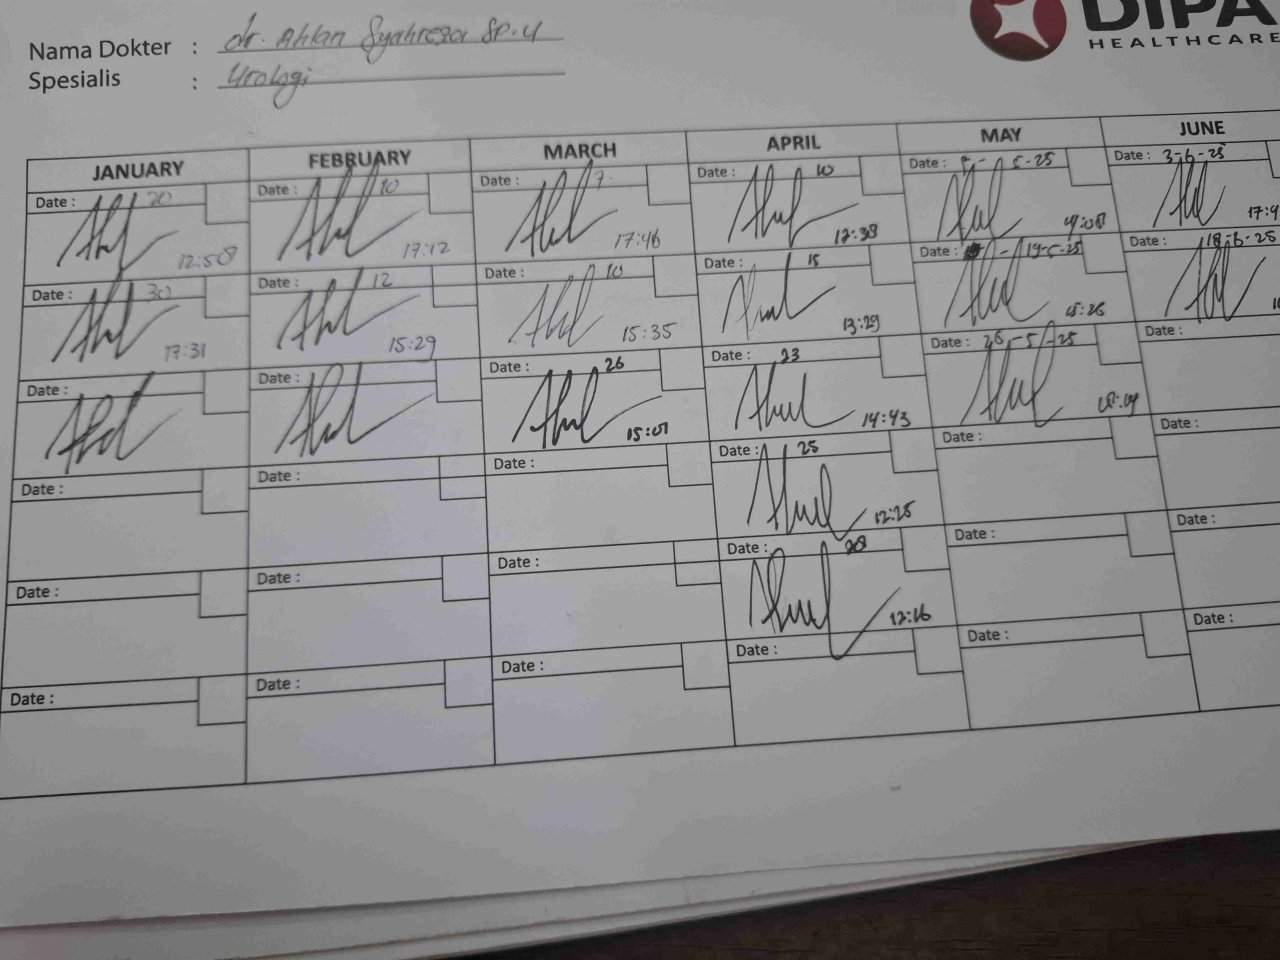 DIPA
HEALTHCARE
Nama Dokter : dr. Ahlan Syahreza Sp.U
Spesialis : Urologi
JANUARY FEBRUARY MARCH APRIL MAY JUNE
Date : 20 Date : 10 Date : 7 Date : 10 Date : 5-25 Date : 3-6-25
12:58 17:12 17:46 12:38
Date : 30 Date : 12 Date : 10 Date : 15 Date : 19-5-25 Date : 18-6-25
17:31 15:29 15:35 13:29 15:26
Date : Date : Date : 26 Date : 23 Date : 26-5-25 Date :
15:01 14:43
Date : Date : Date : Date : 25 Date : Date :
12:25
Date : Date : Date : Date : 28 Date : Date :
12:16
Date : Date : Date : Date : Date : Date :